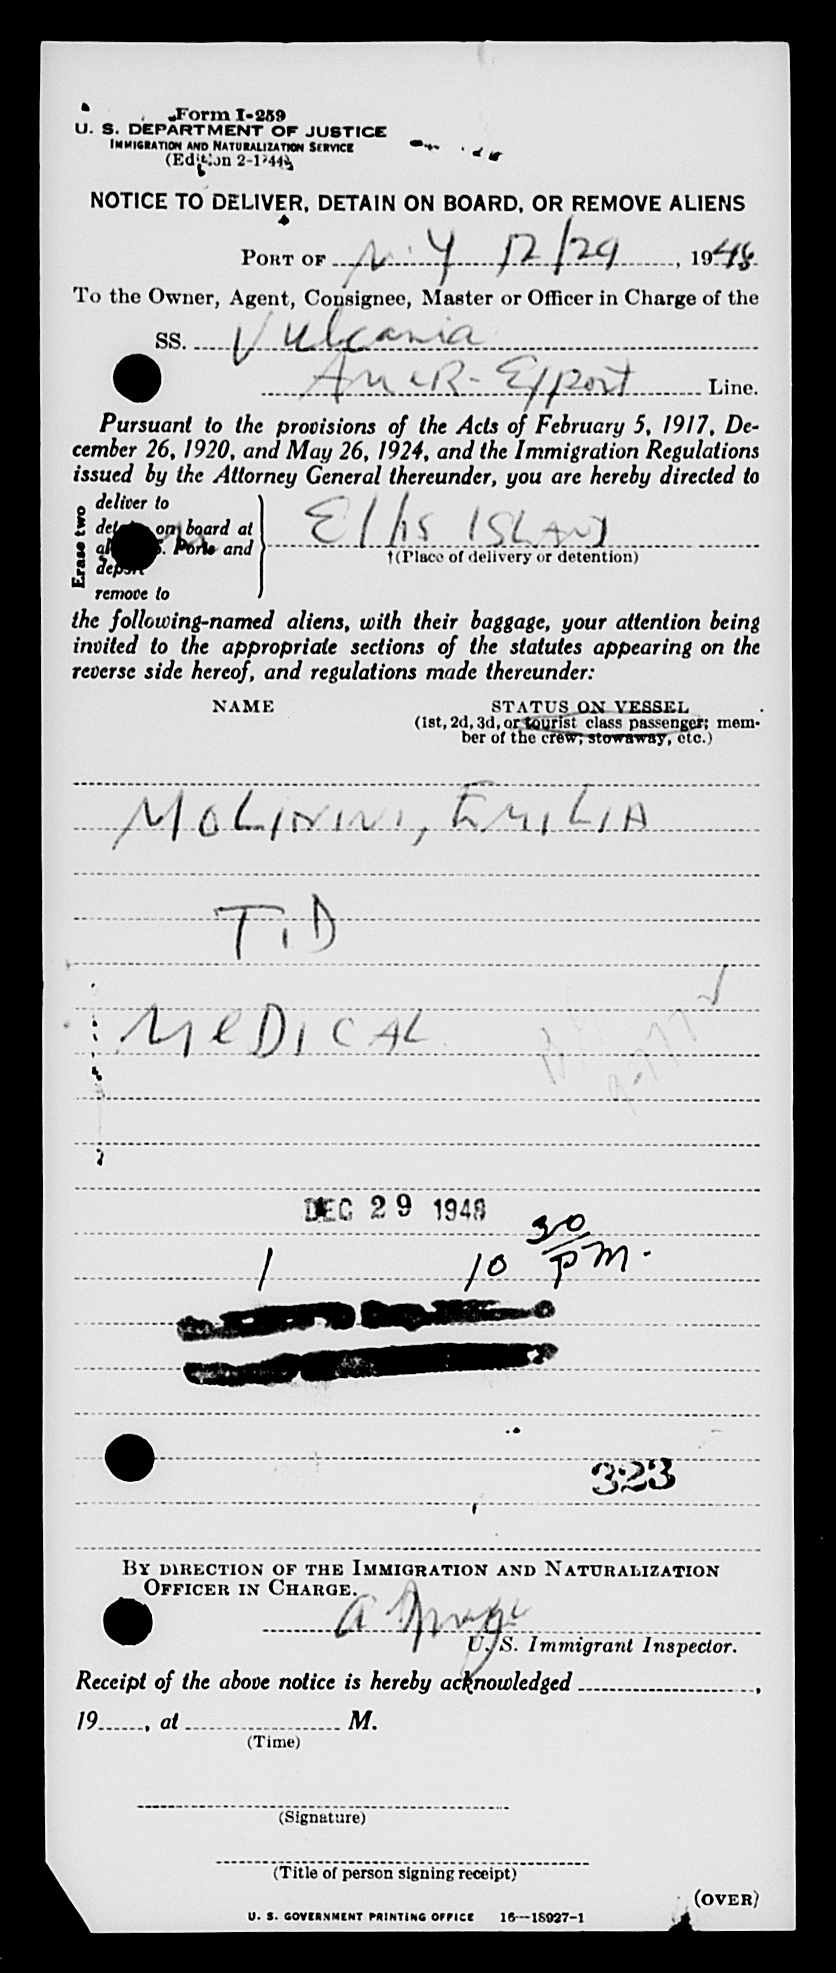 Form I-259
U. S. DEPARTMENT OF JUSTICE
IMMIGRATION AND NATURALIZATION SERVICE
(Edition 2-1-44)
NOTICE TO DELIVER, DETAIN ON BOARD, OR REMOVE ALIENS
PORT OF N.Y 12/29, 1948
To the Owner, Agent, Consignee, Master or Officer in Charge of the
SS. Vulcania
AMER-Export Line.
Pursuant to the provisions of the Acts of February 5, 1917, De-
cember 26, 1920, and May 26, 1924, and the Immigration Regulations
issued by the Attorney General thereunder, you are hereby directed to
Erase two
deliver to
on board at
Ports and
deport
remove to
Ellis ISLAND
†(Place of delivery or detention)
the following-named aliens, with their baggage, your attention being
invited to the appropriate sections of the statutes appearing on the
reverse side hereof, and regulations made thereunder:
NAME STATUS ON VESSEL
(1st, 2d, 3d, or tourist class passenger; mem-
ber of the crew; stowaway, etc.)
MOLININI, EMILIA
T.D
MEDICAL
DEC 29 1948
1 10 30/PM.
323
BY DIRECTION OF THE IMMIGRATION AND NATURALIZATION
OFFICER IN CHARGE.
U. S. Immigrant Inspector.
Receipt of the above notice is hereby acknowledged ,
19 , at M.
(Time)
(Signature)
(Title of person signing receipt)
(OVER)
U. S. GOVERNMENT PRINTING OFFICE 16—18927-1